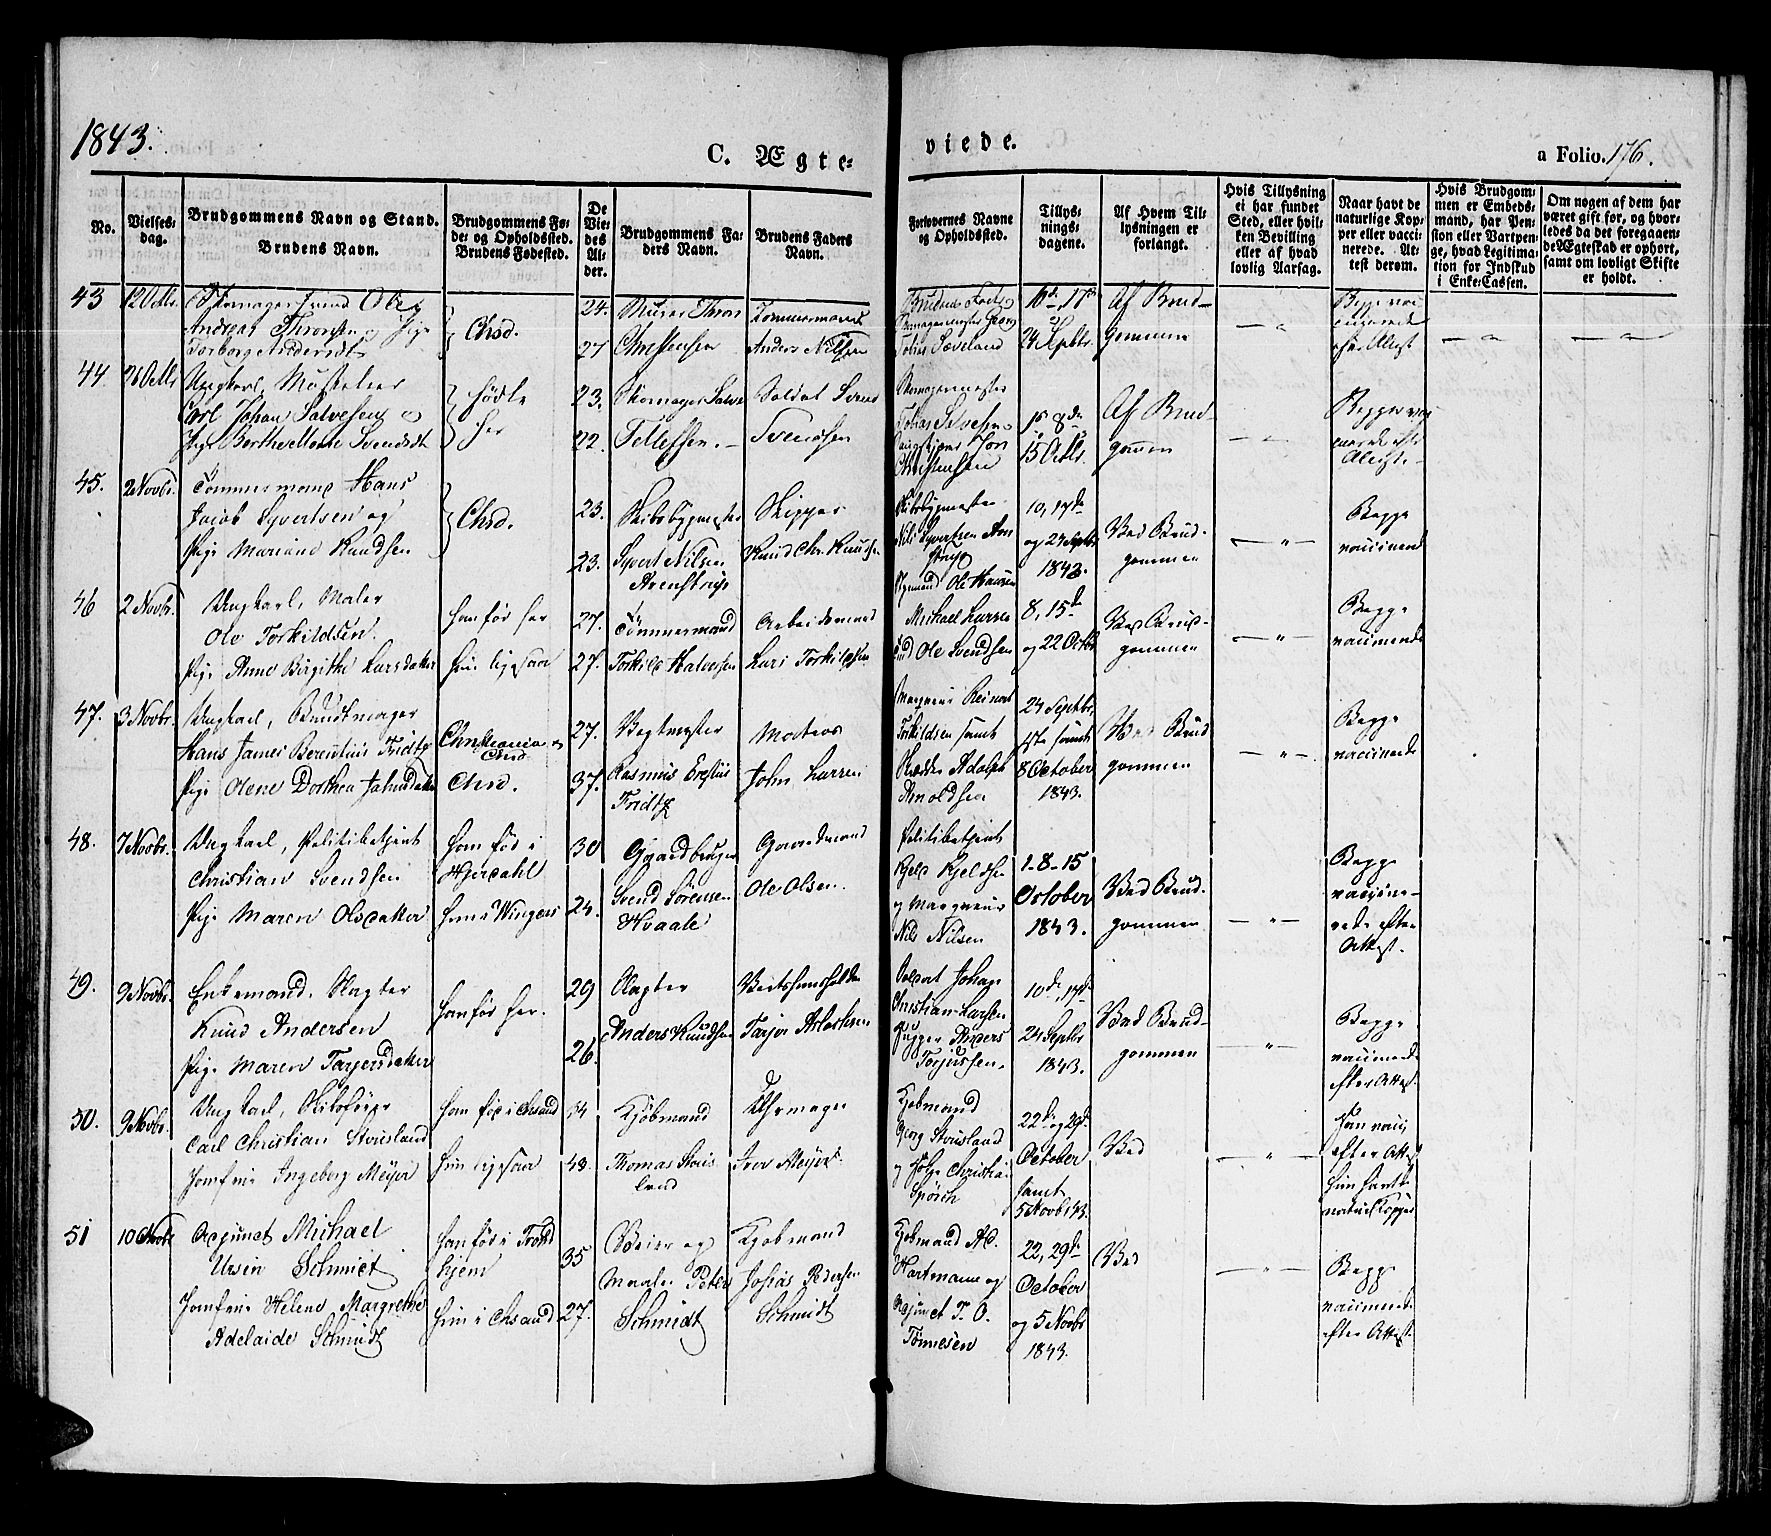 1843.
C. Ægte-
viede.
a Folio. 176.
No.
Vielses-
dag.
Brudgommens Navn og Stand.
Brudens Navn.
Brudgommens Fø-
de- og Opholdssted.
Brudens Fødested.
De
Vie-
des
Al-
der.
Brudgommens Fa-
ders Navn.
Brudens Faders
Navn.
Forlovernes Navne
og Opholdssted.
Tillys-
nings-
dagene.
Af Hvem Til-
lysningen er
forlangt.
Hvis Tillysning
ei har fundet
Sted, eller hvil-
ken Bevilling
eller af hvad
lovlig Aarsag.
Naar havt de
naturlige Kop-
per eller vacci-
nerede. At-
test derom.
Hvis Brudgom-
men er Embeds-
mand, har Pen-
sion eller Vartpen-
ge, hvad Legitima-
tion for Indskud
i Enke-Cassen.
Om nogen af dem har
været gift før, og hvor-
ledes da det foregaaen-
de Ægteskab er ophørt,
samt om lovligt Skifte
er holdt.
43
12 Octbr.
Skomagersvend Ole
Andreas Thorsen og Pige
Torborg Andersdt
Chsd.
24.
27
Murer Thor
Christensen
Tømmermand
Anders Nilsen
Skomagermester Georg
Tobias Søveland
10de, 17de
24 Septbr.
Af Brud-
gommen
Begge vac-
cinerede
efter Attest
44
26 Octbr
Ungkarl, Musketeer
Carl Johan Salvesen og
Pige Berthe Marie Svendsdt
Fødte
her
23.
22.
Skomager Salve
Tellefsen.
Soldat Svend
Svendsen
Skomagermester
Tobias Salvesen
Jon
Christensen
1ste 8de
15 Octbr.
Af Brud-
gommen
Begge vac-
cinerede efter
Attest
45.
2 Novbr.
Tømmermand Hans
Jacob Syvertsen og
Pige Mariane Knudsen
Chsd.
23.
23.
Skibsbygmester
Syvert Nilsen
Arenstrup
Skipper
Knud Chr. Knudsen
Skibsbygmester
Nils Syvertsen Aren
strup
Ole Hansen
10, 17de
og 24 Septbr
1843.
Ved Brud-
gommen
Begge
vaccinerede
46
2 Novbr.
Ungkarl, Maler
Ole Torkildsen.
Pige Anne Birgithe Larsdatter
Han fød her
Hun ligesaa
27.
27.
Tømmermand
Torkild Halvorsen
Arbeidsmand
Lars Torkildsen
Michael Larsen
Ole Svendsen
8, 15de
og 22 Octbr
Ved Brud-
gommen
Begge
vaccinerede
47.
3 Novbr.
Ungkarl, Buntmager
Hans James Berentius Fridtz
Pige Olene Dorthea Johnsdatter
Christiania og
Chsd
Chsd.
27.
37.
Vegtmester
Rasmus Erestius
Fridtz
Matros
John Larsen
Reinert
Torkildsen samt
Skrædder Adolph
Arnoldsen
24 Septbr,
1ste samt
8 October
1843.
Ved Brud
gommen
Begge
vaccinerede
48.
7 Novbr.
Ungkarl, Politibetjent
Christian Svendsen
Pige Maren Olsdatter
Han fød i
Hjerdahl
Hun i Wingers
30
24.
Gaardbruger
Svend Sørensen
Hvaale
Gaardmand
Ole Olsen.
Politibetjent
Kjeld Kjeldsen
og Marqueur
Nils Nilsen
1-8-15
October
1843.
Ved Brud-
gommen
Begge
vaccine-
rede efter
Attest.
49.
9 Novbr.
Enkemand, Slagter
Knud Andersen
Pige Maren Tarjersdatter
Han fød her.
29
26.
Slagter
Anders Knudsen
Vertshuusholder
Tarjer Aslaksen
Soldat Johan
Christian Larsen
Anders
Torjussen.
10de, 17de
24 Septbr
1843.
Ved Brud-
gommen
Begge
vaccinerede
efter Attest.
50.
9 Novbr.
Ungkarl, Skibsfører
Carl Christian Stousland
Jomfrue Ingeborg Meyer
Han fød i Chsand
Hun ligesaa
34
43.
Kjøbmand
Thomas Stous
land
Uhrmager
Iver Meyer.
Kjøbmand
Georg Stousland
og Christian
Spørck
22de og 29de
October
samt
5 Novb 1843.
Ved
Han vacc.
efter Attest
Hun havt
naturl. Kopper
51
10 Novbr
Adjunct Michael
Ursin Schmidt
Jomfrue Helene Margrethe
Adelaide Schmidt
Han fød i Trond
hjem
Hun i Chsand
35
27.
Veier og
Maaler Peter
Schmidt
Kjøbmand
Josias Pedersen
Schmidt
Kjøbmand
Hartmann og
Adjunct T. O.
Tønnesen
22, 29de
October
og 5 Novbr
1843.
Ved
Begge
vaccinerede
efter Attest.